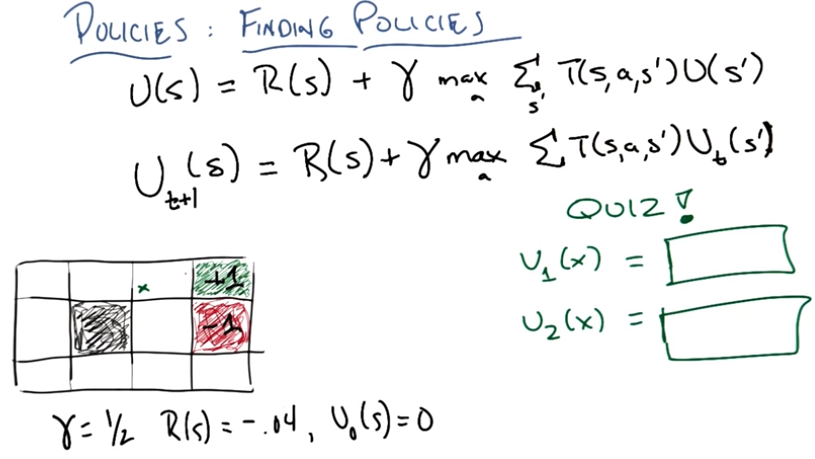 POLICIES : FINDING POLICIES
U(s) = R(s) + γ max_a Σ_s' T(s,a,s')U(s')
U_t+1(s) = R(s) + γ max_a Σ T(s,a,s')U_t(s')
QUIZ!
U_1(x) =
U_2(x) =
x +1
-1
γ = 1/2 R(s) = -.04, U_0(s) = 0